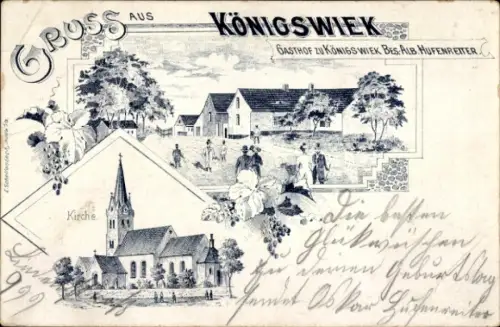 GRUSS AUS KÖNIGSWIEK
GASTHOF ZU KÖNIGSWIEK BES. ALB. HUFENREITER
Kirche
Die besten
Glückwünschen
zu deinem Geburtstag
sendet Oskar Hufenreiter